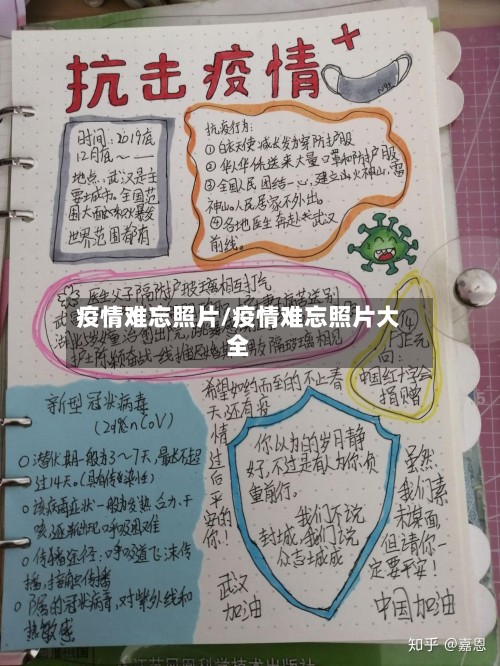 抗击疫情
N95
时间:2019底
12月底~——
地点:武汉是主
要城市。全国范
围大面积爆发
世界范围都有
抗疫行为:
①白衣天使成长发为穿防护服
②华人华侨送来大量口罩和防护服
③全国人民团结一心,建立火神山,雷
神山。人民居家不外出。
④各地医生奔赴武汉
前线。
医生父子隔防护玻璃相互打气
疫情难忘照片/疫情难忘照片大
全
④
问:
中国红十字会
捐赠
新型冠状病毒
(2019-nCoV)
潜伏期一般为3~7天,最长不超
过14天。(具有传染性)
该病毒症状一般为发热、乏力、干
咳,逐渐出现呼吸困难
传播途径:呼吸道飞沫传
播,接触传播
冠状病毒,对紫外线和
热敏感
希望如约而至的不止春
天,还有疫
情过后平安的你!
你以为的岁月静
好,不过是有人为你负
重前行。
我们不说
封城,我们说
众志成城
虽然
我们素
未谋面,
但请你一
定要平安!
武汉
加油
中国加油
知乎 @嘉恩